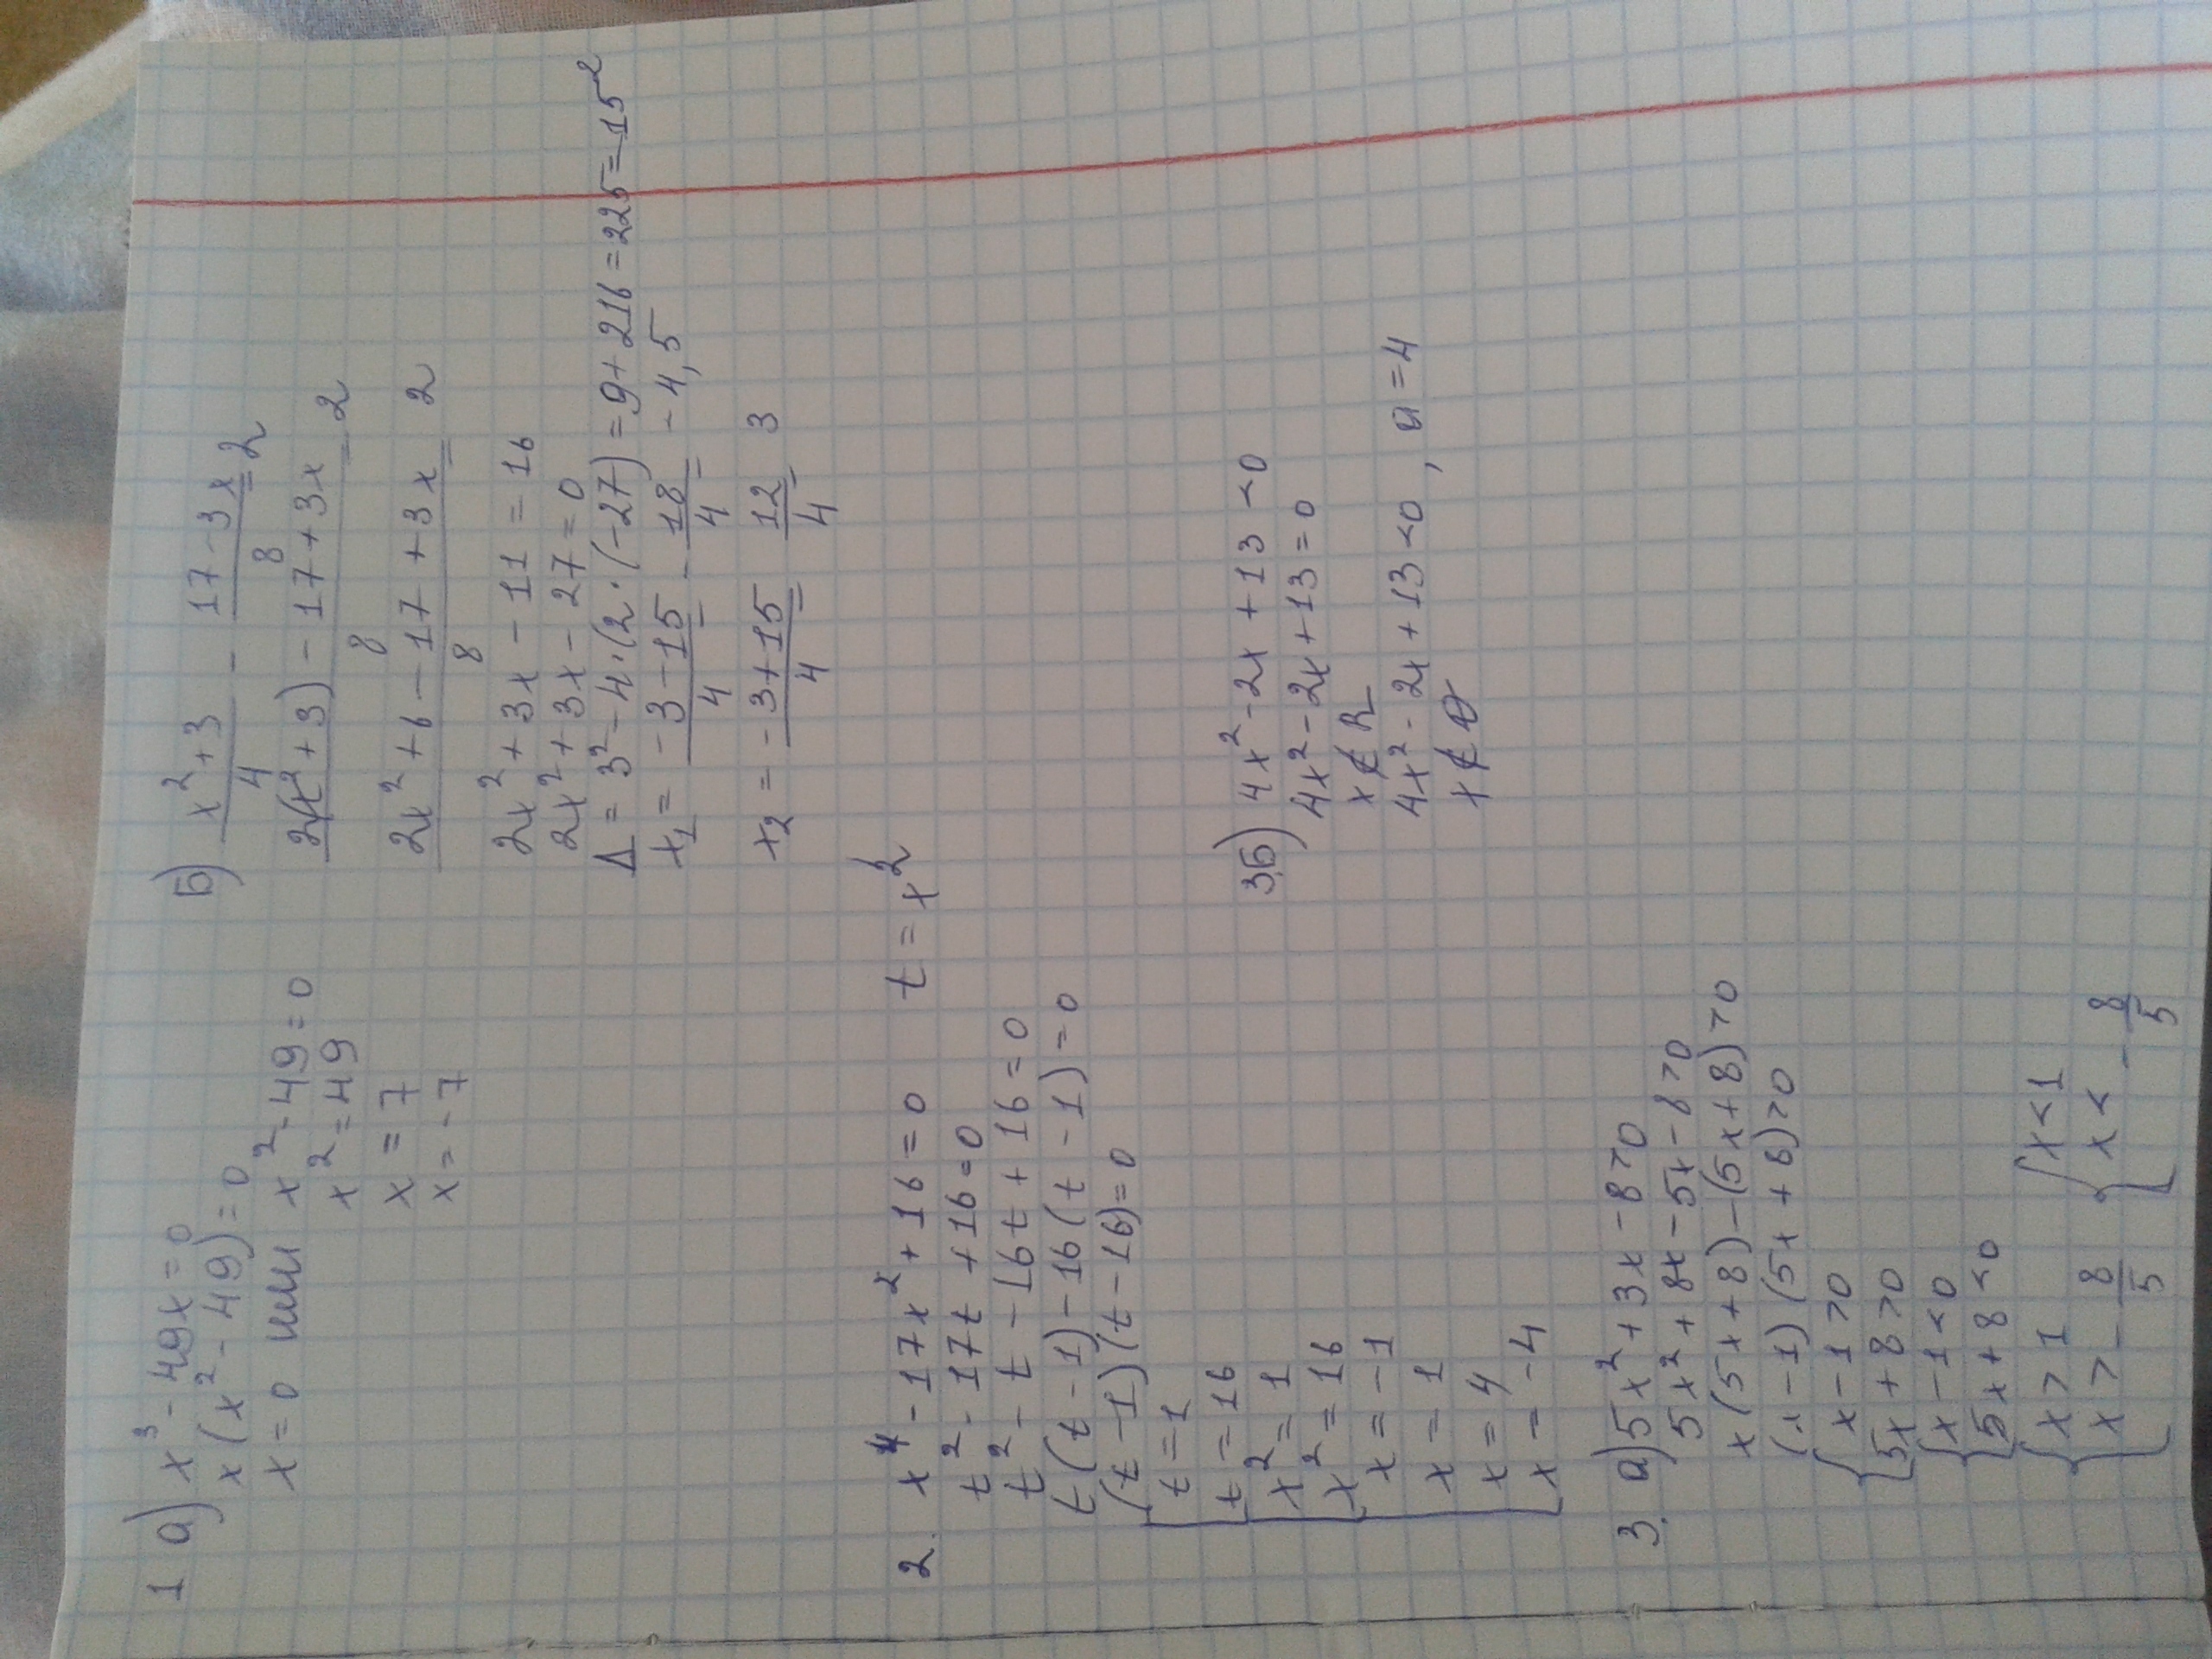 1 а) x³ - 49x = 0
x(x² - 49) = 0
x = 0 или x² - 49 = 0
x² = 49
x = 7
x = -7
Б) x²+3/4 - 17-3x/8 = 2
2(x²+3) - 17+3x/8 = 2
2x²+6-17+3x/8 = 2
2x²+3x-11 = 16
2x²+3x-27 = 0
Δ = 3²-4·(2·(-27) = 9+216 = 225 = 15²
x₁ = -3-15/4 = -18/4 = -4,5
x₂ = -3+15/4 = 12/4 = 3
2. x⁴ - 17x² + 16 = 0 t = x²
t² - 17t + 16 = 0
t² - t - 16t + 16 = 0
t(t-1) - 16(t-1) = 0
(t-1)(t-16) = 0
[t = 1
t = 16
[x² = 1
x² = 16
[x = -1
x = 1
x = 4
x = -4
3. а) 5x² + 3x - 8 > 0
5x² + 8x - 5x - 8 > 0
x(5x+8) - (5x+8) > 0
(x-1)(5x+8) > 0
{x-1 > 0
5x+8 > 0
{x-1 < 0
5x+8 < 0
{x > 1 {x < 1
x > -8/5 x < -8/5
3.Б) 4x² - 2x + 13 < 0
4x² - 2x + 13 = 0
x ∉ R
4x² - 2x + 13 < 0, a = 4
x ∉ Ø